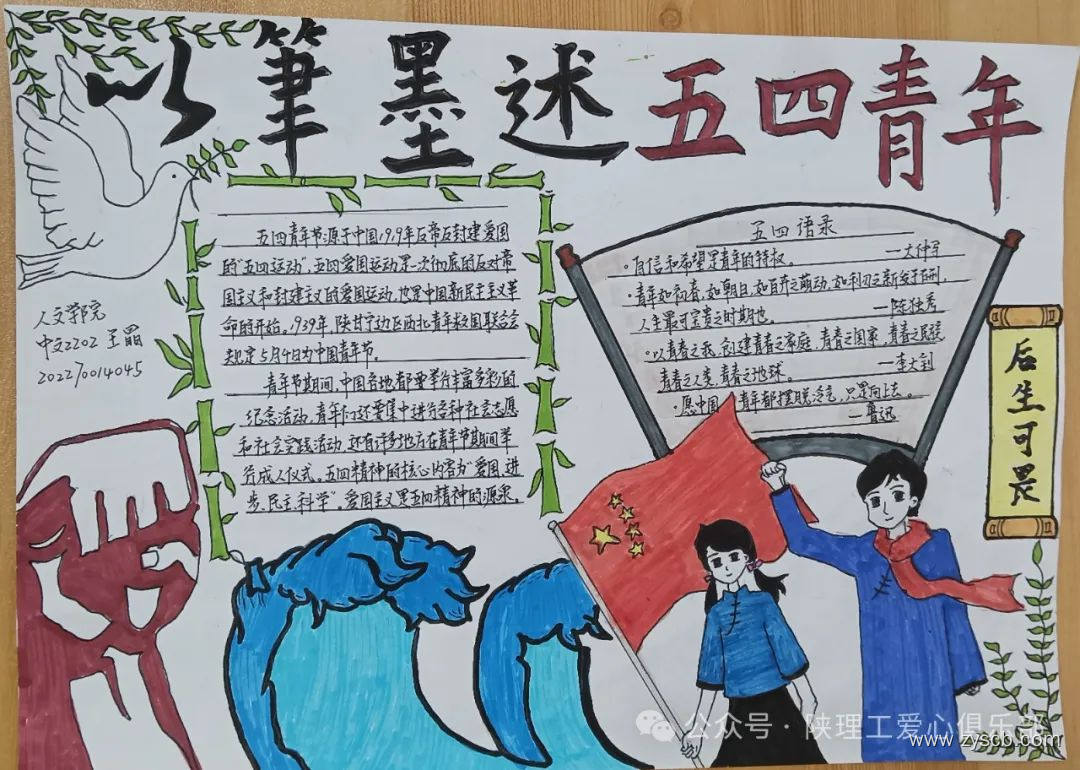 以筆墨述五四青年
人文学院
中文2202 王晶
2022/0014045
五四青年节源于中国1919年反帝反封建爱国
的“五四运动”,五四爱国运动是一次彻底的反对帝
国主义和封建主义的爱国运动,也是中国新民主主义革
命的开始。1939年,陕甘宁边区西北青年救国联合会
规定5月4日为中国青年节。
青年节期间,中国各地都要举行丰富多彩的
纪念活动,青年们还要集中进行各种社会志愿
和社会实践活动,还有许多地方在青年节期间举
行成人仪式。五四精神的核心内容为“爱国、进
步、民主、科学”。爱国主义是五四精神的源泉。
五四语录
·自信和希望是青年的特权。 —大仲马
·青年如初春,如朝日,如百卉之萌动,如利刃之新发于硎,
人生最可宝贵之时期也。 —陈独秀
·以青春之我,创建青春之家庭,青春之国家,青春之民族
青春之人类,青春之地球。 —李大钊
·愿中国青年都摆脱冷气,只是向上走。
—鲁迅
后生可畏
公众号·陕理工爱心俱乐部
www.zyscb.com